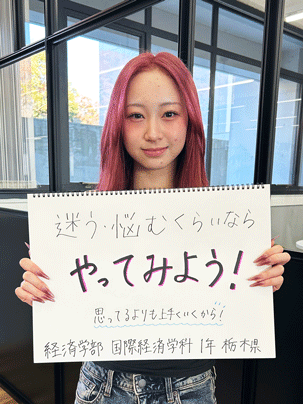 迷う・悩むくらいなら
やってみよう！
思ってるよりも上手くいくから！
経済学部 国際経済学科 1年 栃木県